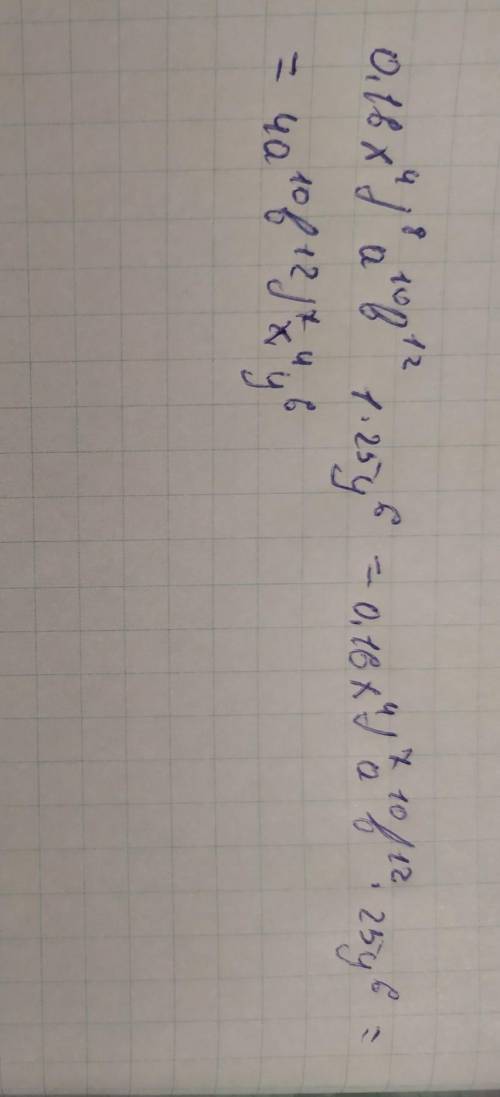 0,16x⁴j⁸ a¹⁰b¹² 1·25y⁶ = 0,16x⁴j⁷ a¹⁰b¹² · 25y⁶ =
= 4a¹⁰b¹²j⁷x⁴y⁶